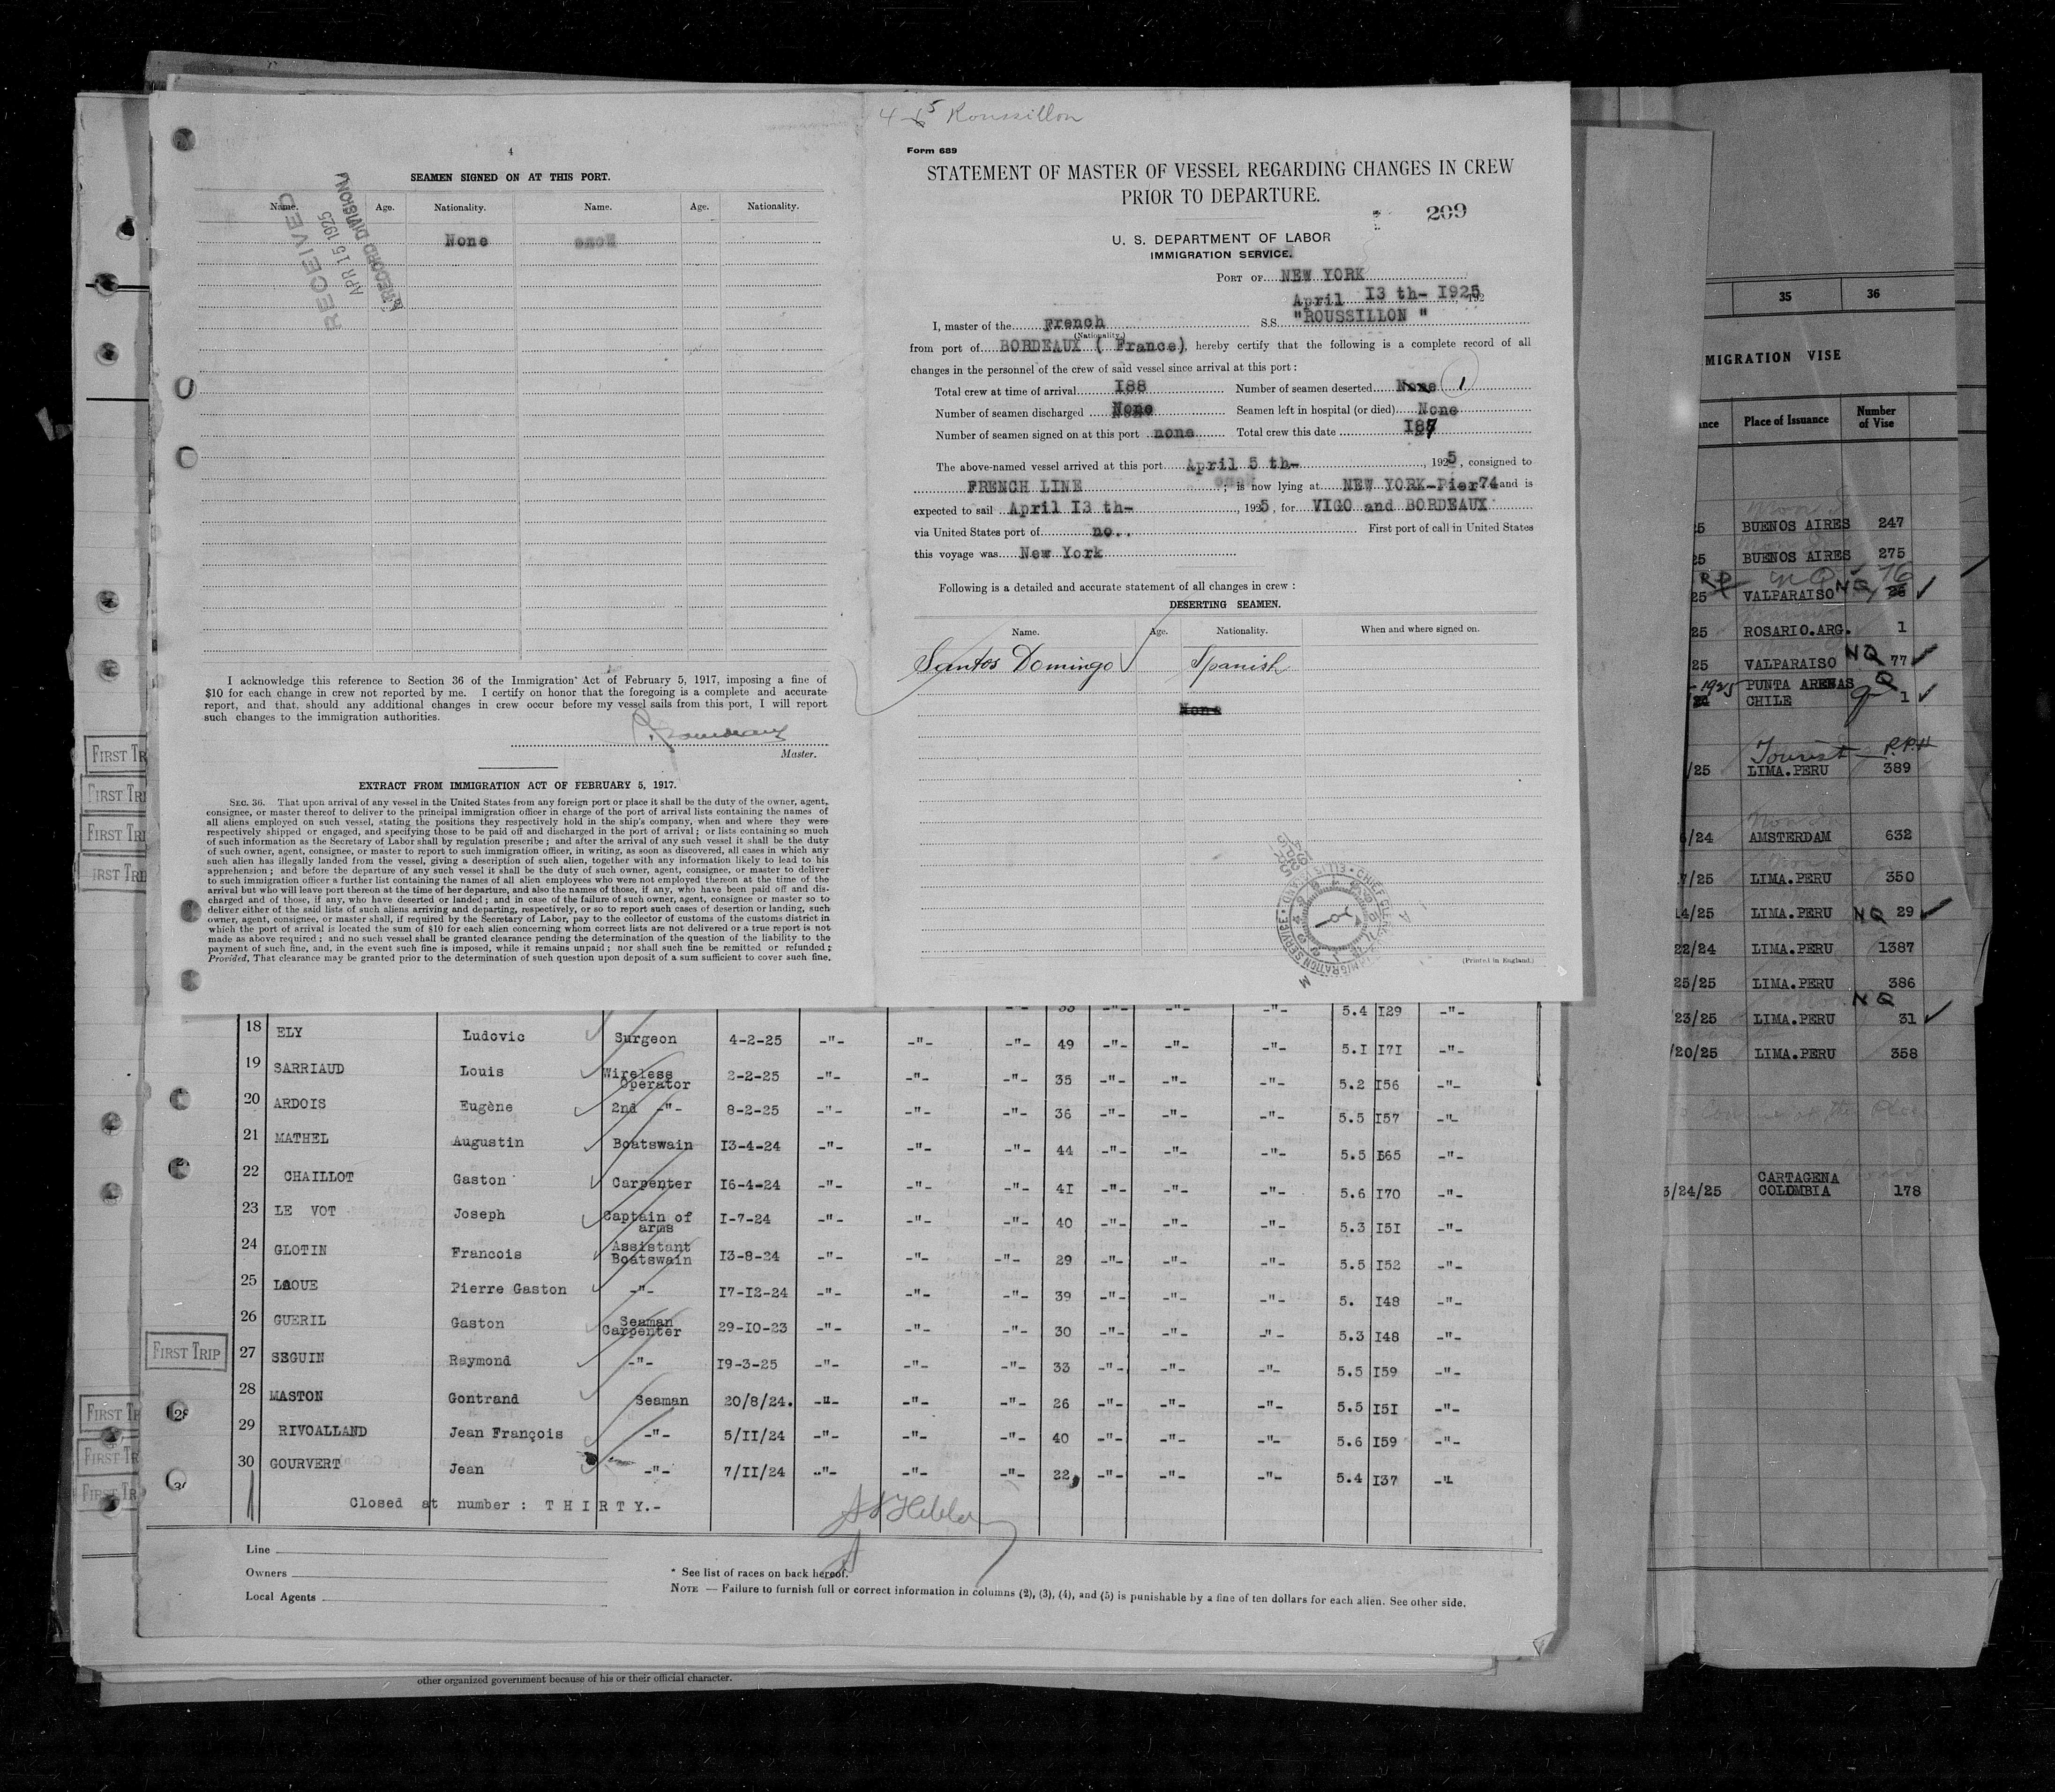 4-5 Roussillon
4
SEAMEN SIGNED ON AT THIS PORT.
Name. Age. Nationality. Name. Age. Nationality.
None
RECEIVED
APR 15 1925
RECORD DIVISION
I acknowledge this reference to Section 36 of the Immigration Act of February 5, 1917, imposing a fine of
$10 for each change in crew not reported by me. I certify on honor that the foregoing is a complete and accurate
report, and that should any additional changes in crew occur before my vessel sails from this port, I will report
such changes to the immigration authorities.
Master.
EXTRACT FROM IMMIGRATION ACT OF FEBRUARY 5, 1917.
SEC. 36. That upon arrival of any vessel in the United States from any foreign port or place it shall be the duty of the owner, agent,
consignee, or master thereof to deliver to the principal immigration officer in charge of the port of arrival lists containing the names of
all aliens employed on such vessel, stating the positions they respectively hold in the ship's company, when and where they were
respectively shipped or engaged, and specifying those to be paid off and discharged in the port of arrival; or lists containing so much
of such information as the Secretary of Labor shall by regulation prescribe; and after the arrival of any such vessel it shall be the duty
of such owner, agent, consignee, or master to report to such immigration officer, in writing, as soon as discovered, all cases in which any
such alien has illegally landed from the vessel, giving a description of such alien, together with any information likely to lead to his
apprehension; and before the departure of any such vessel it shall be the duty of such owner, agent, consignee, or master to deliver
to such immigration officer a further list containing the names of all alien employees who were not employed thereon at the time of the
arrival but who will leave port thereon at the time of her departure, and also the names of those, if any, who have been paid off and dis-
charged and of those, if any, who have deserted or landed; and in case of the failure of such owner, agent, consignee or master so to
deliver either of the said lists of such aliens arriving and departing, respectively, or so to report such cases of desertion or landing, such
owner, agent, consignee, or master shall, if required by the Secretary of Labor, pay to the collector of customs of the customs district in
which the port of arrival is located the sum of $10 for each alien concerning whom correct lists are not delivered or a true report is not
made as above required; and no such vessel shall be granted clearance pending the determination of the question of the liability to the
payment of such fine, and, in the event such fine is imposed, while it remains unpaid; nor shall such fine be remitted or refunded;
Provided, That clearance may be granted prior to the determination of such question upon deposit of a sum sufficient to cover such fine.
Form 689
STATEMENT OF MASTER OF VESSEL REGARDING CHANGES IN CREW
PRIOR TO DEPARTURE.
209
U. S. DEPARTMENT OF LABOR
IMMIGRATION SERVICE.
PORT OF NEW YORK
April I3 th- I925, 192
I, master of the French S.S. "ROUSSILLON "
(Nationality.)
from port of BORDEAUX ( France), hereby certify that the following is a complete record of all
changes in the personnel of the crew of said vessel since arrival at this port:
Total crew at time of arrival I88 Number of seamen deserted None 1
Number of seamen discharged None Seamen left in hospital (or died) None
Number of seamen signed on at this port none Total crew this date I87
The above-named vessel arrived at this port April 5 th- , 1925, consigned to
FRENCH LINE ; is now lying at NEW YORK-Pier74 and is
expected to sail April I3 th- , 1925, for VIGO and BORDEAUX
via United States port of no.. First port of call in United States
this voyage was New York
Following is a detailed and accurate statement of all changes in crew:
DESERTING SEAMEN.
Name. Age. Nationality. When and where signed on.
Santos Domingo Spanish
None
(Printed in England.)
5.4 I29 -"-
18 ELY Ludovic Surgeon 4-2-25 -"- -"- -"- 49 -"- -"- -"- 5.I I7I -"-
19 SARRIAUD Louis Wireless Operator 2-2-25 -"- -"- -"- 35 -"- -"- -"- 5.2 I56 -"-
20 ARDOIS Eugène 2nd -"- 8-2-25 -"- -"- -"- 36 -"- -"- -"- 5.5 I57 -"-
21 MATHEL Augustin Boatswain I3-4-24 -"- -"- -"- 44 -"- -"- -"- 5.5 I65 -"-
22 CHAILLOT Gaston Carpenter I6-4-24 -"- -"- -"- 4I -"- -"- -"- 5.6 I70 -"-
23 LE VOT Joseph Captain of arms I-7-24 -"- -"- -"- 40 -"- -"- -"- 5.3 I5I -"-
24 GLOTIN Francois Assistant Boatswain I3-8-24 -"- -"- -"- 29 -"- -"- -"- 5.5 I52 -"-
25 Pierre Gaston -"- I7-I2-24 -"- -"- -"- 39 -"- -"- -"- 5. I48 -"-
26 GUERIL Gaston Seaman Carpenter 29-I0-23 -"- -"- -"- 30 -"- -"- -"- 5.3 I48 -"-
27 SEGUIN Raymond -"- I9-3-25 -"- -"- -"- 33 -"- -"- -"- 5.5 I59 -"-
28 MASTON Gontrand Seaman 20/8/24. -"- -"- -"- 26 -"- -"- -"- 5.5 I5I -"-
29 RIVOALLAND Jean François -"- 5/II/24 -"- -"- -"- 40 -"- -"- -"- 5.6 I59 -"-
30 GOURVERT Jean -"- 7/II/24 -"- -"- -"- 22 -"- -"- -"- 5.4 I37 -"-
Closed at number : T H I R T Y.-
Line
Owners
Local Agents
* See list of races on back hereof.
NOTE — Failure to furnish full or correct information in columns (2), (3), (4), and (5) is punishable by a fine of ten dollars for each alien. See other side.
other organized government because of his or their official character.
FIRST TR
FIRST TRI
FIRST TRI
IRST TRI
FIRST TRIP
FIRST TR
FIRST TR
FIRST TR
35 36
MIGRATION VISE
ance Place of Issuance Number of Vise
25 BUENOS AIRES 247
25 BUENOS AIRES 275
25 VALPARAISO NQ 76
25 ROSARIO.ARG. 1
25 VALPARAISO NQ 77
-1925 PUNTA ARENAS
CHILE 1
Tourist
/25 LIMA.PERU 389
5/24 AMSTERDAM 632
7/25 LIMA.PERU 350
14/25 LIMA.PERU NQ 29
22/24 LIMA.PERU 1387
25/25 LIMA.PERU 386
NQ
23/25 LIMA.PERU 31
/20/25 LIMA.PERU 358
3/24/25 CARTAGENA COLOMBIA 178